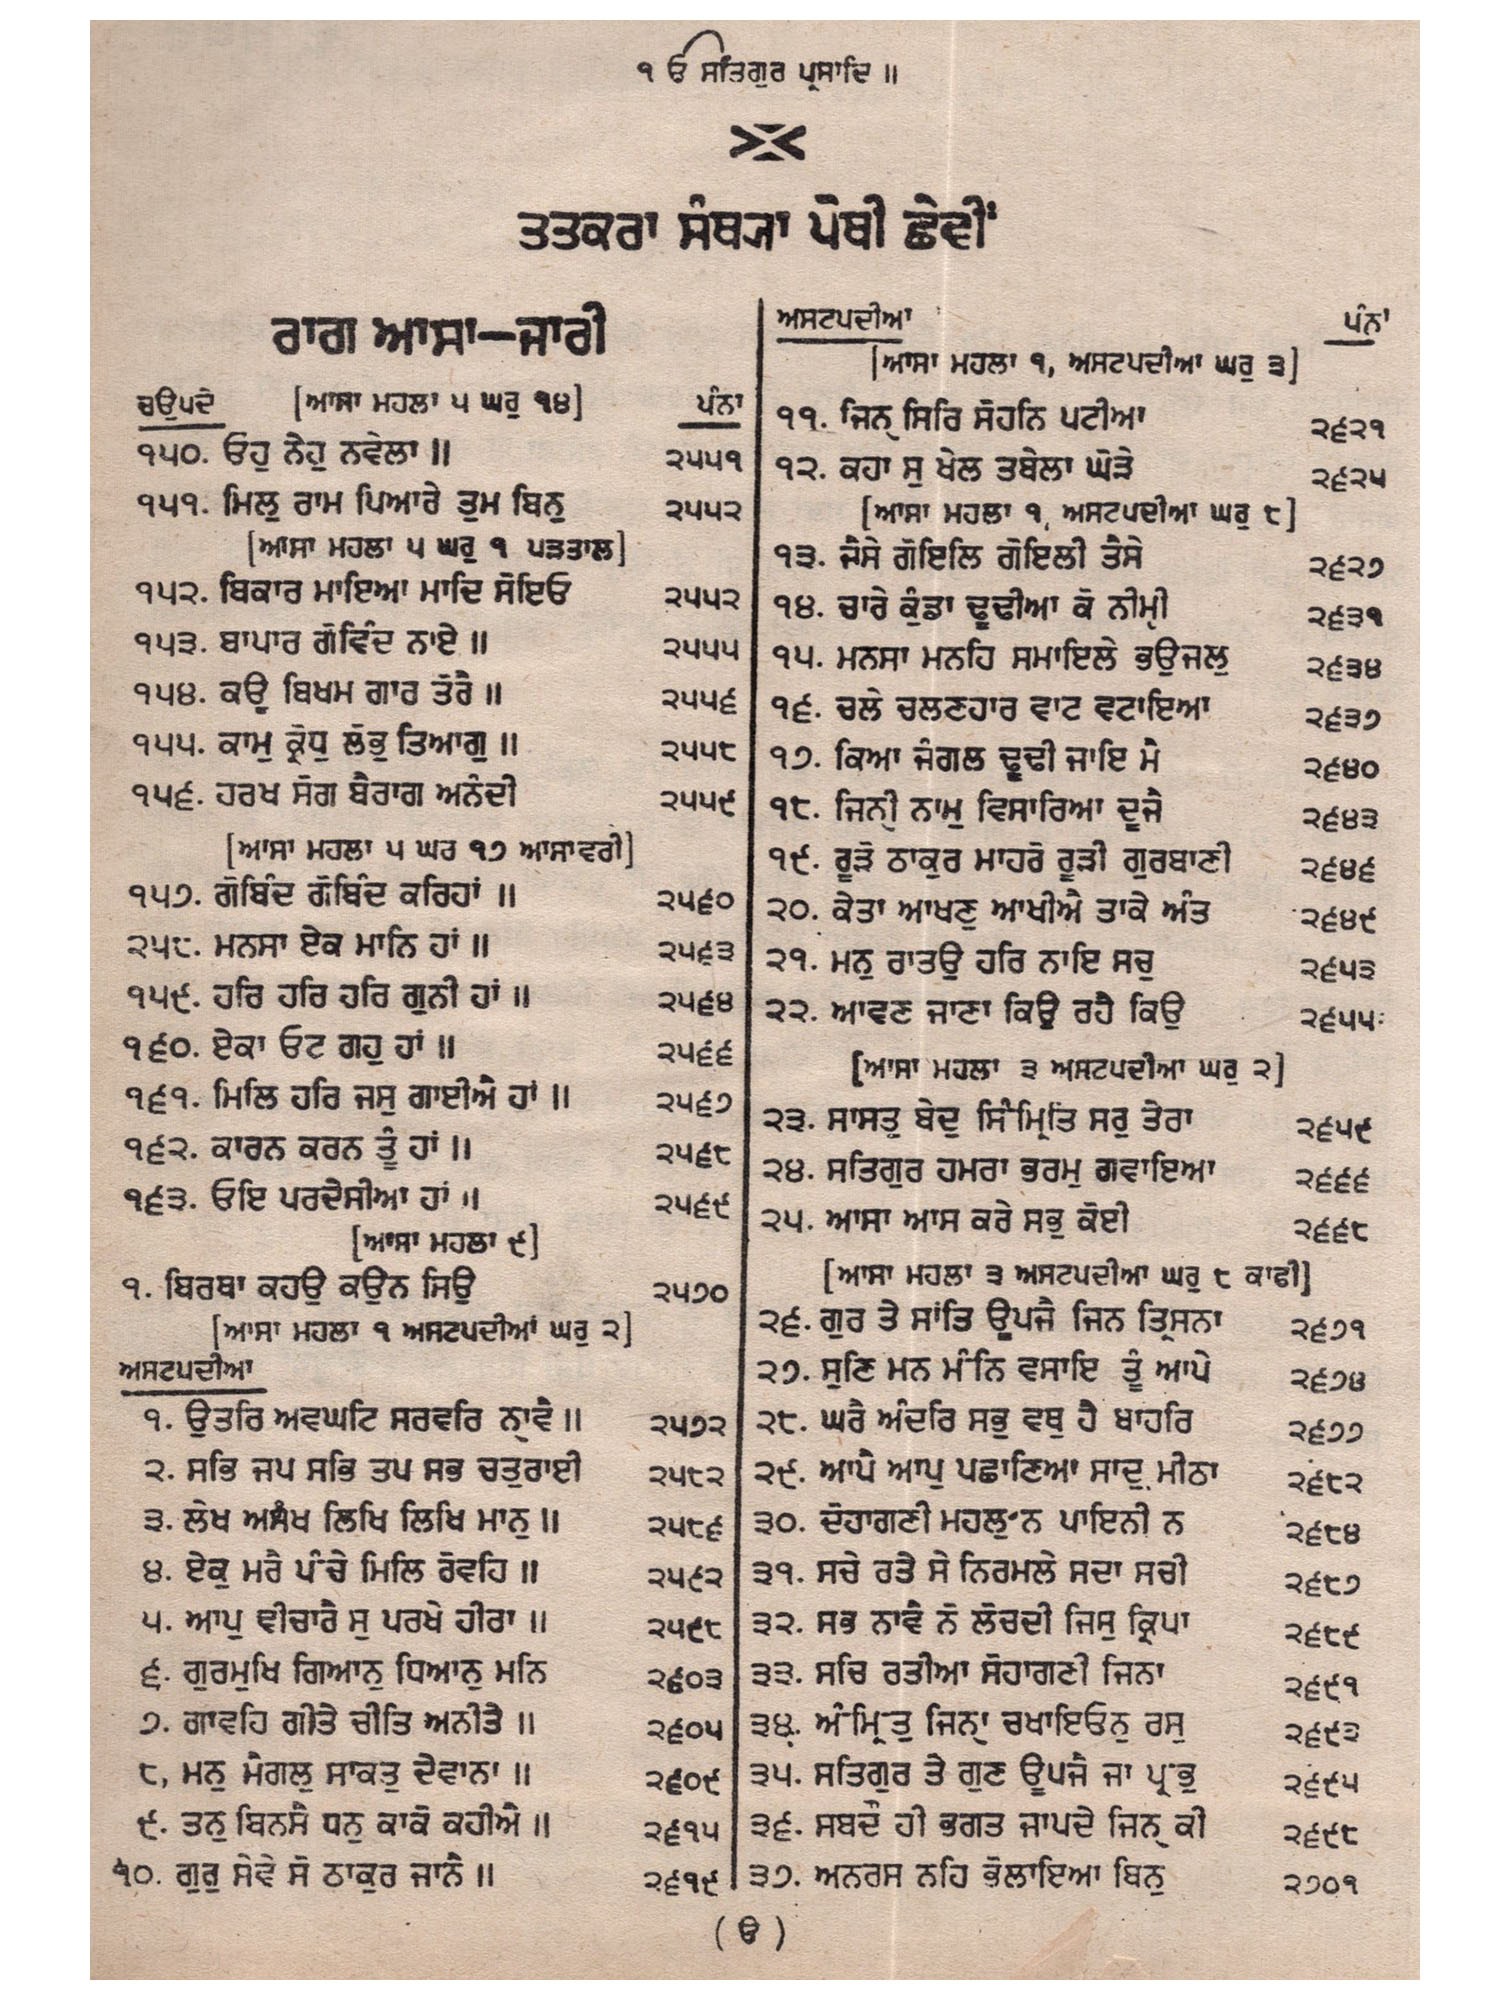 ੧ ਓ ਸਤਿਗੁਰ ਪ੍ਰਸਾਦਿ ॥
ਤਤਕਰਾ ਸੰਥ੍ਯਾ ਪੋਥੀ ਛੇਵੀਂ
ਰਾਗ ਆਸਾ—ਜਾਰੀ
ਚਉਪਦੇ [ਆਸਾ ਮਹਲਾ ੫ ਘਰੁ ੧੪] ਪੰਨਾ
੧੫੦. ਓਹੁ ਨੇਹੁ ਨਵੇਲਾ ॥ ੨੫੫੧
੧੫੧. ਮਿਲੁ ਰਾਮ ਪਿਆਰੇ ਤੁਮ ਬਿਨੁ ੨੫੫੨
[ਆਸਾ ਮਹਲਾ ੫ ਘਰੁ ੧ ਪੜਤਾਲ]
੧੫੨. ਬਿਕਾਰ ਮਾਇਆ ਮਾਦਿ ਸੋਇਓ ੨੫੫੨
੧੫੩. ਬਾਪਾਰ ਗੋਵਿੰਦ ਨਾਏ ॥ ੨੫੫੫
੧੫੪. ਕਊ ਬਿਖਮ ਗਾਰ ਤੋਰੈ ॥ ੨੫੫੬
੧੫੫. ਕਾਮੁ ਕ੍ਰੋਧੁ ਲੋਭੁ ਤਿਆਗੁ ॥ ੨੫੫੮
੧੫੬. ਹਰਖ ਸੋਗ ਬੈਰਾਗ ਅਨੰਦੀ ੨੫੫੯
[ਆਸਾ ਮਹਲਾ ੫ ਘਰ ੧੭ ਆਸਾਵਰੀ]
੧੫੭. ਗੋਬਿੰਦ ਗੋਬਿੰਦ ਕਰਿਹਾਂ ॥ ੨੫੬੦
੨੫੮. ਮਨਸਾ ਏਕ ਮਾਨਿ ਹਾਂ ॥ ੨੫੬੩
੧੫੯. ਹਰਿ ਹਰਿ ਹਰਿ ਗੁਨੀ ਹਾਂ ॥ ੨੫੬੪
੧੬੦. ਏਕਾ ਓਟ ਗਹੁ ਹਾਂ ॥ ੨੫੬੬
੧੬੧. ਮਿਲਿ ਹਰਿ ਜਸੁ ਗਾਈਐ ਹਾਂ ॥ ੨੫੬੭
੧੬੨. ਕਾਰਨ ਕਰਨ ਤੂੰ ਹਾਂ ॥ ੨੫੬੮
੧੬੩. ਓਇ ਪਰਦੇਸੀਆ ਹਾਂ ॥ ੨੫੬੯
[ਆਸਾ ਮਹਲਾ ੯]
੧. ਬਿਰਥਾ ਕਹਉ ਕਉਨ ਸਿਉ ੨੫੭੦
[ਆਸਾ ਮਹਲਾ ੧ ਅਸਟਪਦੀਆਂ ਘਰੁ ੨]
ਅਸਟਪਦੀਆ
੧. ਉਤਰਿ ਅਵਘਟਿ ਸਰਵਰਿ ਨ੍ਹਾਵੈ ॥ ੨੫੭੨
੨. ਸਭਿ ਜਪ ਸਭਿ ਤਪ ਸਭ ਚਤੁਰਾਈ ੨੫੮੨
੩. ਲੇਖ ਅਸੰਖ ਲਿਖਿ ਲਿਖਿ ਮਾਨੁ ॥ ੨੫੮੬
੪. ਏਕੁ ਮਰੈ ਪੰਚੇ ਮਿਲਿ ਰੋਵਹਿ ॥ ੨੫੯੨
੫. ਆਪੁ ਵੀਚਾਰੈ ਸੁ ਪਰਖੇ ਹੀਰਾ ॥ ੨੫੯੮
੬. ਗੁਰਮੁਖਿ ਗਿਆਨੁ ਧਿਆਨੁ ਮਨਿ ੨੬੦੩
੭. ਗਾਵਹਿ ਗੀਤੇ ਚੀਤਿ ਅਨੀਤੇ ॥ ੨੬੦੫
੮, ਮਨੁ ਮੈਗਲੁ ਸਾਕਤੁ ਦੇਵਾਨਾ ॥ ੨੬੦੯
੯. ਤਨੁ ਬਿਨਸੈ ਧਨੁ ਕਾਕੋ ਕਹੀਐ ॥ ੨੬੧੫
੧੦. ਗੁਰੁ ਸੇਵੇ ਸੋ ਠਾਕੁਰ ਜਾਨੈ ॥ ੨੬੧੯
ਅਸਟਪਦੀਆ ਪੰਨਾ
[ਆਸਾ ਮਹਲਾ ੧, ਅਸਟਪਦੀਆ ਘਰੁ ੩]
੧੧. ਜਿਨ੍ ਸਿਰਿ ਸੋਹਨਿ ਪਟੀਆ ੨੬੨੧
੧੨. ਕਹਾ ਸੁ ਖੇਲ ਤਬੇਲਾ ਘੋੜੇ ੨੬੨੫
[ਆਸਾ ਮਹਲਾ ੧, ਅਸਟਪਦੀਆ ਘਰੁ ੮]
੧੩. ਜੈਸੇ ਗੋਇਲਿ ਗੋਇਲੀ ਤੈਸੇ ੨੬੨੭
੧੪. ਚਾਰੇ ਕੁੰਡਾ ਢੂਢੀਆ ਕੋ ਨੀਮ੍ਹੀ ੨੬੩੧
੧੫. ਮਨਸਾ ਮਨਹਿ ਸਮਾਇਲੇ ਭਉਜਲੁ ੨੬੩੪
੧੬. ਚਲੇ ਚਲਣਹਾਰ ਵਾਟ ਵਟਾਇਆ ੨੬੩੭
੧੭. ਕਿਆ ਜੰਗਲ ਢੂਢੀ ਜਾਇ ਮੈ ੨੬੪੦
੧੮. ਜਿਨੀ੍ ਨਾਮੁ ਵਿਸਾਰਿਆ ਦੂਜੈ ੨੬੪੩
੧੯. ਰੂੜੋ ਠਾਕੁਰ ਮਾਹਰੋ ਰੂੜੀ ਗੁਰਬਾਣੀ ੨੬੪੬
੨੦. ਕੇਤਾ ਆਖਣੁ ਆਖੀਐ ਤਾਕੇ ਅੰਤ ੨੬੪੯
੨੧. ਮਨੁ ਰਾਤਉ ਹਰਿ ਨਾਇ ਸਚੁ ੨੬੫੩
੨੨. ਆਵਣ ਜਾਣਾ ਕਿਉ ਰਹੈ ਕਿਉ ੨੬੫੫
[ਆਸਾ ਮਹਲਾ ੩ ਅਸਟਪਦੀਆ ਘਰੁ ੨]
੨੩. ਸਾਸਤੁ ਬੇਦੁ ਸਿੰਮ੍ਰਿਤਿ ਸਰੁ ਤੇਰਾ ੨੬੫੯
੨੪. ਸਤਿਗੁਰ ਹਮਰਾ ਭਰਮੁ ਗਵਾਇਆ ੨੬੬੬
੨੫. ਆਸਾ ਆਸ ਕਰੇ ਸਭੁ ਕੋਈ ੨੬੬੮
[ਆਸਾ ਮਹਲਾ ੩ ਅਸਟਪਦੀਆ ਘਰੁ ੮ ਕਾਫੀ]
੨੬. ਗੁਰ ਤੇ ਸਾਂਤਿ ਊਪਜੈ ਜਿਨ ਤ੍ਰਿਸਨਾ ੨੬੭੧
੨੭. ਸੁਣਿ ਮਨ ਮੰਨਿ ਵਸਾਇ ਤੂੰ ਆਪੇ ੨੬੭੪
੨੮. ਘਰੈ ਅੰਦਰਿ ਸਭੁ ਵਥੁ ਹੈ ਬਾਹਰਿ ੨੬੭੭
੨੯. ਆਪੈ ਆਪੁ ਪਛਾਣਿਆ ਸਾਦੁ ਮੀਠਾ ੨੬੮੨
੩੦. ਦੋਹਾਗਣੀ ਮਹਲੁ ਨ ਪਾਇਨੀ ਨ ੨੬੮੪
੩੧. ਸਚੇ ਰਤੇ ਸੇ ਨਿਰਮਲੇ ਸਦਾ ਸਚੀ ੨੬੮੭
੩੨. ਸਭ ਨਾਵੈ ਨੋ ਲੋਚਦੀ ਜਿਸੁ ਕ੍ਰਿਪਾ ੨੬੮੯
੩੩. ਸਚਿ ਰਤੀਆ ਸੋਹਾਗਣੀ ਜਿਨਾ ੨੬੯੧
੩੪. ਅੰਮ੍ਰਿਤੁ ਜਿਨ੍ਾ ਚਖਾਇਓਨੁ ਰਸੁ ੨੬੯੩
੩੫. ਸਤਿਗੁਰ ਤੇ ਗੁਣ ਊਪਜੈ ਜਾ ਪ੍ਰਭੁ ੨੬੯੫
੩੬. ਸਬਦੌ ਹੀ ਭਗਤ ਜਾਪਦੇ ਜਿਨ੍ ਕੀ ੨੬੯੮
੩੭. ਅਨਰਸ ਨਹਿ ਭੋਲਾਇਆ ਬਿਨੁ ੨੭੦੧
( ੳ )